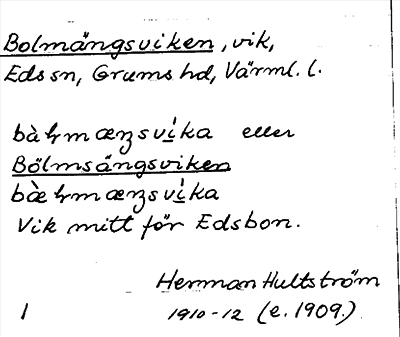 Bolmängsviken, vik,
Eds sn, Grums hd, Värml. l.
bàɫmæŋsvi̇ka eller
Bölmsängsviken
bæ̀ɫmæŋsvi̇ka
Vik mitt för Edsbon.
Herman Hultström
1 1910-12 (e. 1909.)